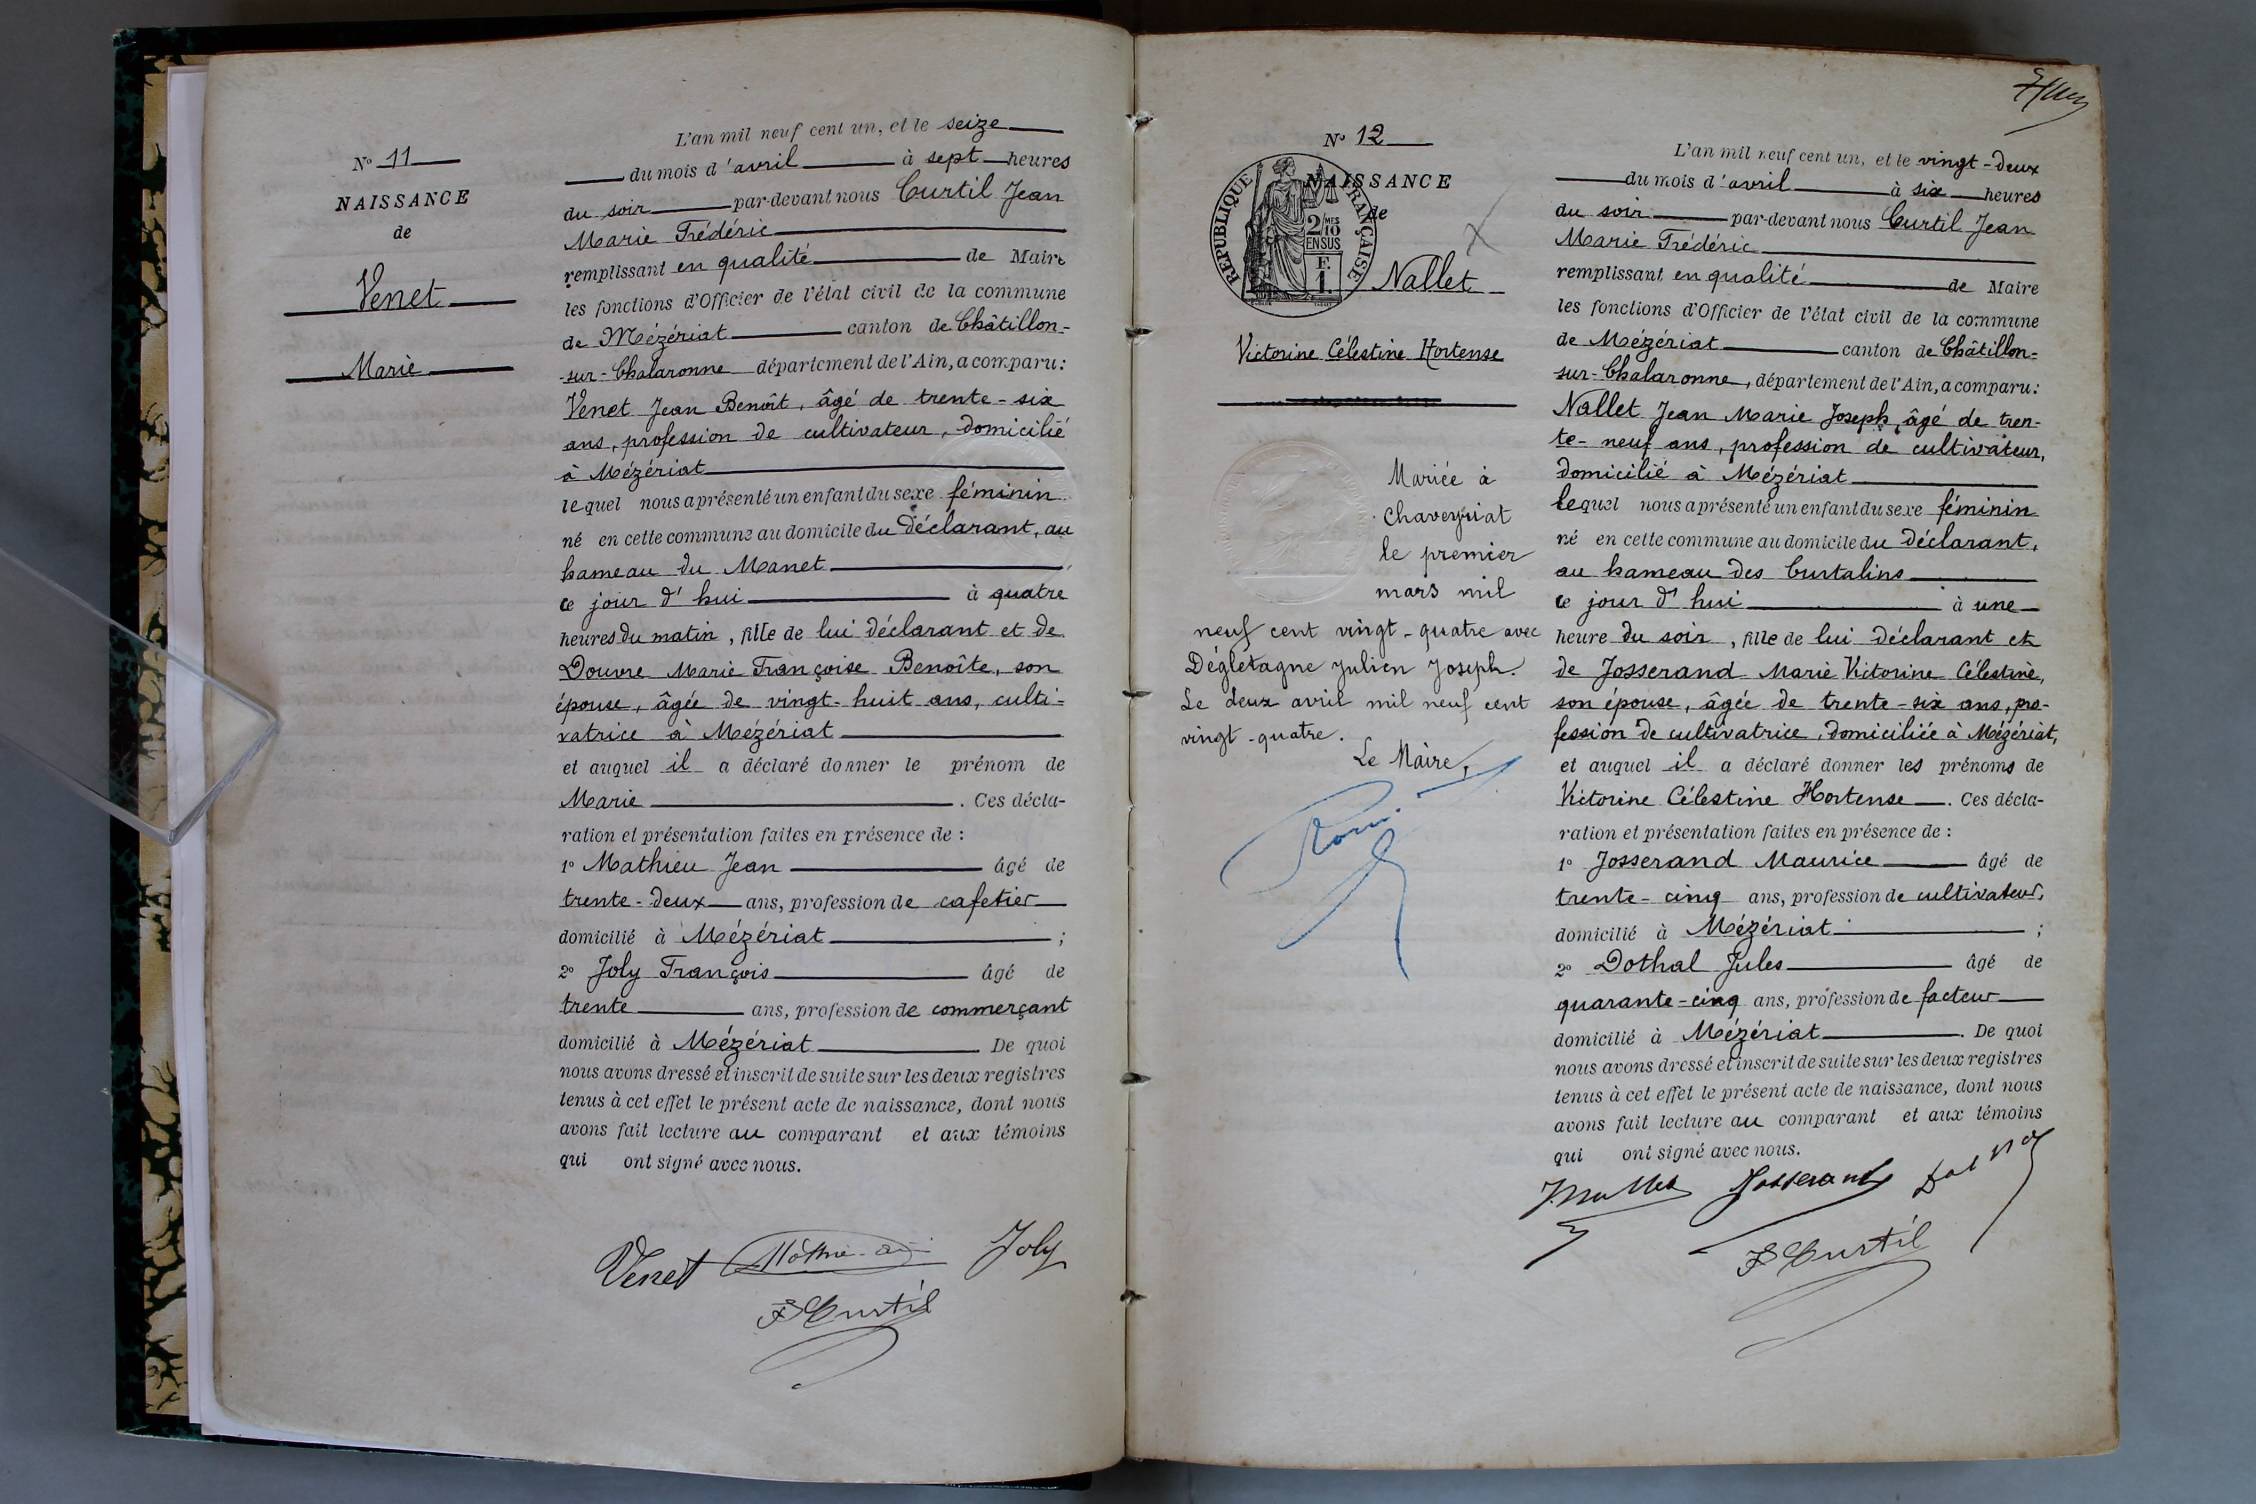 N° 11
NAISSANCE
de
Venet
Marie
L'an mil neuf cent un, et le seize
du mois d'avril à sept heures
du soir par-devant nous Curtil Jean
Marie Frédéric
remplissant en qualité de Maire
les fonctions d'Officier de l'état civil de la commune
de Mézériat canton de Châtillon-
sur-Chalaronne département de l'Ain, a comparu:
Venet Jean Benoît, âgé de trente-six
ans, profession de cultivateur, domicilié
à Mézériat
lequel nous a présenté un enfant du sexe féminin
né en cette commune au domicile du déclarant, au
hameau du Manet
ce jour d'hui à quatre
heures du matin, fille de lui déclarant et de
Douvre Marie Françoise Benoîte, son
épouse, âgée de vingt-huit ans, culti-
vatrice à Mézériat
et auquel il a déclaré donner le prénom de
Marie. Ces décla-
ration et présentation faites en présence de :
1° Mathieu Jean âgé de
trente-deux ans, profession de cafetier
domicilié à Mézériat ;
2° Joly François âgé de
trente ans, profession de commerçant
domicilié à Mézériat. De quoi
nous avons dressé et inscrit de suite sur les deux registres
tenus à cet effet le présent acte de naissance, dont nous
avons fait lecture au comparant et aux témoins
qui ont signé avec nous.
Venet Joly
F Curtil
N° 12
NAISSANCE
de
RÉPUBLIQUE FRANÇAISE
2 MES
10
EN SUS
F.
1.
Nallet
Victorine Célestine Hortense
Mariée à
Chaveyriat
le premier
mars mil
neuf cent vingt-quatre avec
Dégletagne Julien Joseph.
Le deux avril mil neuf cent
vingt-quatre.
Le Maire,
L'an mil neuf cent un, et le vingt-deux
du mois d'avril à six heures
du soir par-devant nous Curtil Jean
Marie Frédéric
remplissant en qualité de Maire
les fonctions d'Officier de l'état civil de la commune
de Mézériat canton de Châtillon-
sur-Chalaronne, département de l'Ain, a comparu:
Nallet Jean Marie Joseph, âgé de tren-
te-neuf ans, profession de cultivateur,
domicilié à Mézériat
lequel nous a présenté un enfant du sexe féminin
né en cette commune au domicile du déclarant,
au hameau des Curtalins
ce jour d'hui à une
heure du soir, fille de lui déclarant et
de Josserand Marie Victorine Célestine,
son épouse, âgée de trente-six ans, pro-
fession de cultivatrice, domiciliée à Mézériat,
et auquel il a déclaré donner les prénoms de
Victorine Célestine Hortense. Ces décla-
ration et présentation faites en présence de :
1° Josserand Maurice âgé de
trente-cinq ans, profession de cultivateur,
domicilié à Mézériat ;
2° Dothal Jules âgé de
quarante-cinq ans, profession de facteur
domicilié à Mézériat. De quoi
nous avons dressé et inscrit de suite sur les deux registres
tenus à cet effet le présent acte de naissance, dont nous
avons fait lecture au comparant et aux témoins
qui ont signé avec nous.
Josserand
F Curtil